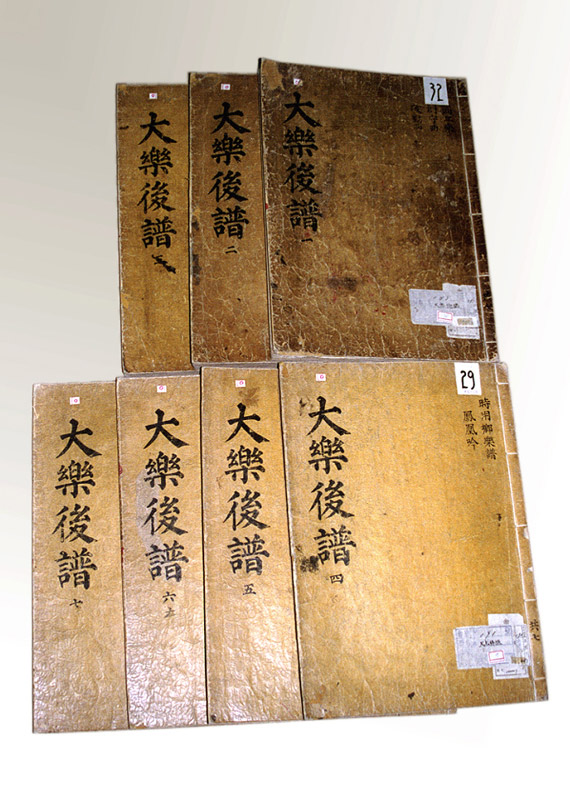 大樂後譜 三
大樂後譜 二
大樂後譜 一
32
大樂後譜 七
大樂後譜 六
大樂後譜 五
大樂後譜 四
29
時用鄕樂譜
鳳凰吟
共七